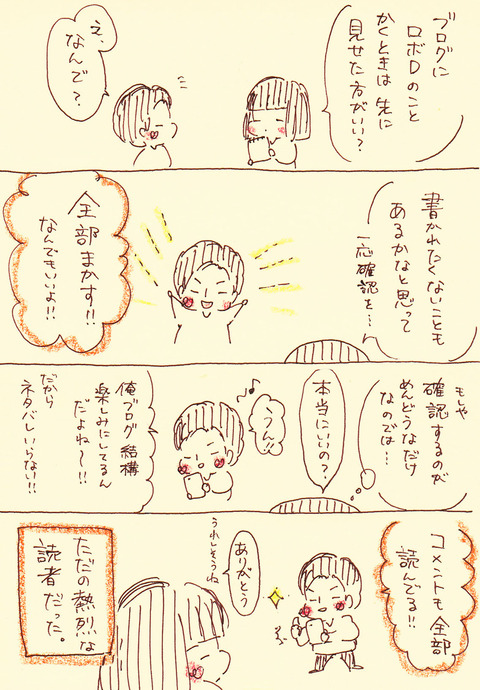 ブログに
ロボDのこと
かくときは先に
見せた方がいい?
え、
なんで?
書かれたくないことも
あるかなと思って
一応確認を…
全部まかす!!
なんでもいいよ!!
もしや
確認するのが
めんどうなだけ
なのでは…
本当にいいの?
うん!!
俺ブログ結構
楽しみにしてるん
だよね〜!!
だから
ネタバレいらない!!
コメントも全部
読んでる!!
ありがとう
うれしそうね
ただの熱烈な
読者だった。